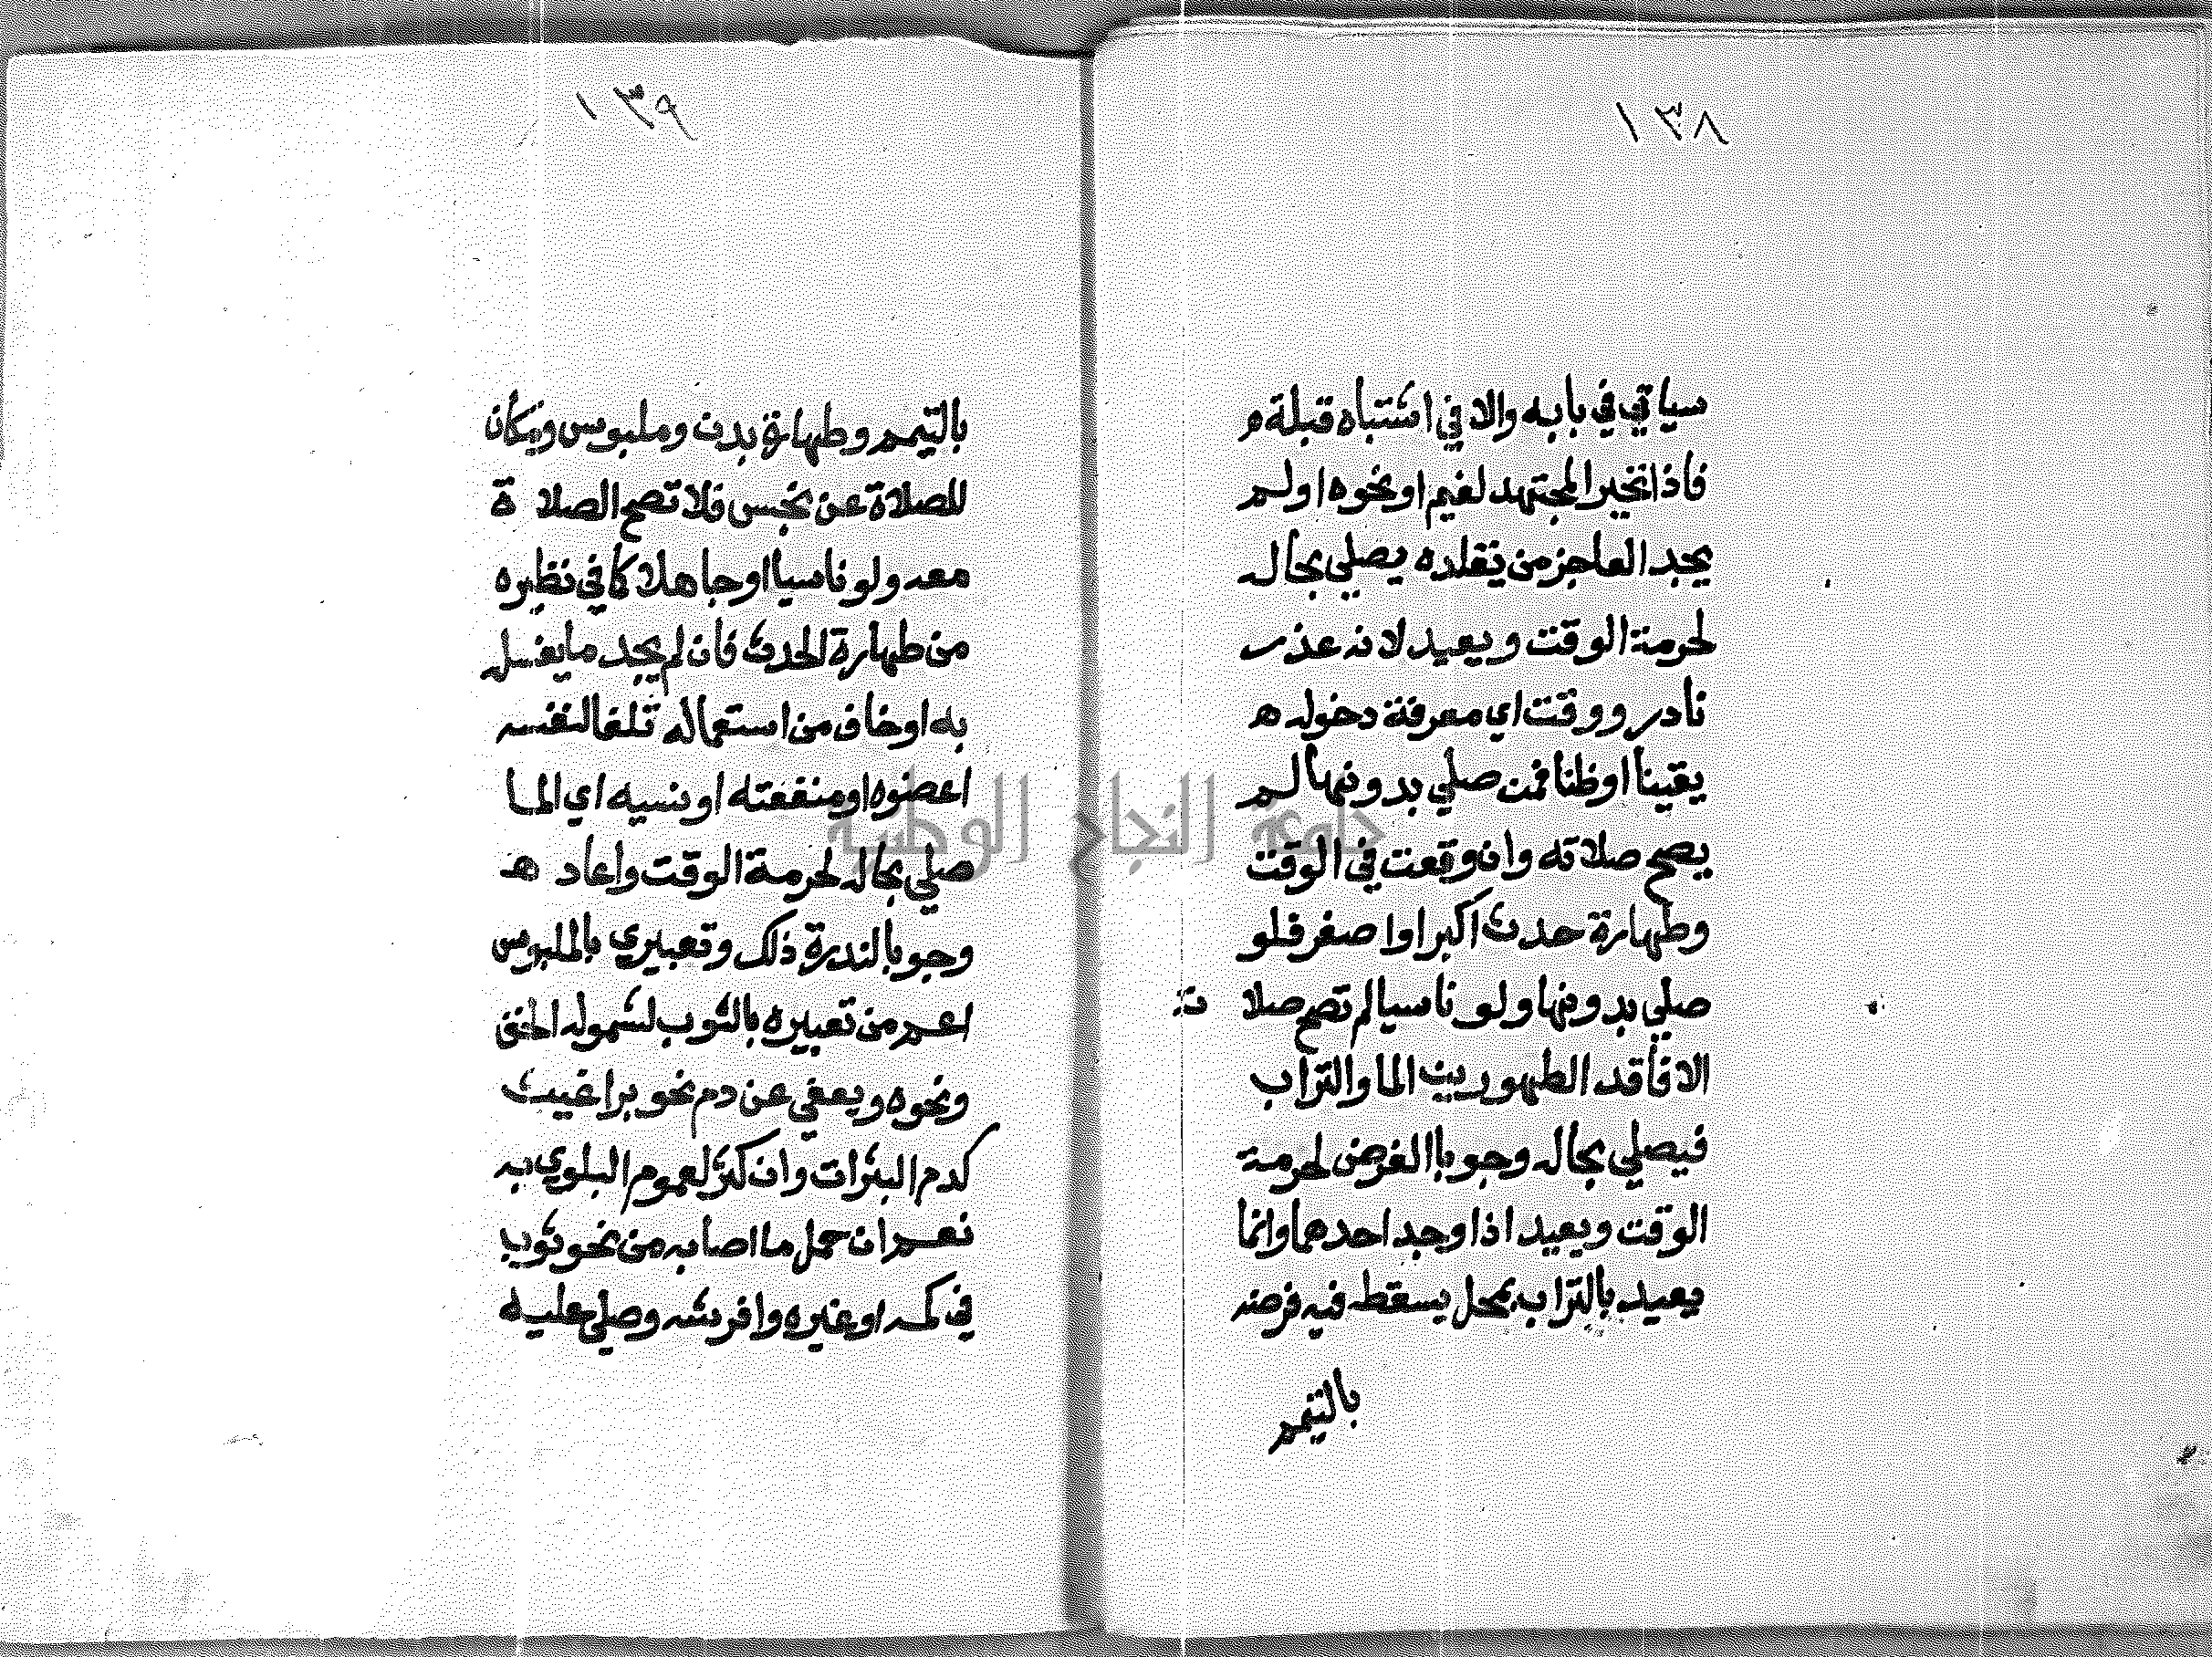 ١٣٨
سياتي في بابه والا في اشتباه قبلة م
فاذا تخير المجتهد لغيم او نحوه او لم
يجد العاجز من يقلده يصلي بحاله
لحرمة الوقت ويعيد لانه عذر
نادر ووقت اي معرفة دخوله ه
يقينا او ظنا فمن صلي بدونها لم
يصح صلاته وان وقعت في الوقت
وطهارة حدث اكبر او اصغر فلو
صلي بدونها ولو ناسيا لم تصح صلات
الا فاقد الطهورين الما والتراب
فيصلي بحاله وجوبا الفرض لحرمة
الوقت ويعيد اذا وجد احدهما وانما
يعيد بالتراب بمحل يسقط فيه فرضه
بالتيمم
١٣٩
بالتيمم وطهارة بدن وملبوس ومكان
للصلاة عن نجس فلا تصح الصلاة
معه ولو ناسيا او جاهلا كما في نظيره
من طهارة الحدث فان لم يجد ما يغسل
به او خاف من استعماله تلفا لنفسه
اعضوه او منفعته او نسيه اي الما
صلي بحاله لحرمة الوقت واعاد ه
وجوبا لندرة ذلك وتعبيري بالملبوس
اعم من تعبيره بالثوب لشموله الخف
ونحوه ويعفي عن دم نحو براغيث
كدم البثرات وان كثر لعموم البلوي به
نعم ان حمل ما اصابه من نحو ثوب
في كمه او غيره وافرشه وصلي عليه
جامعة النجاح الوطنية